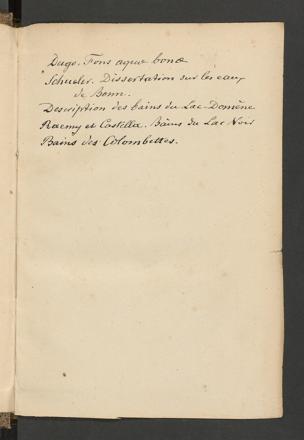 Dugo. Fons aquæ bonæ
Schueler. Dissertation sur les eaux
de Bonn.
Description des bains du Lac-Domène
Raemy et Castella. Bains du Lac Noir
Bains des Colombettes.